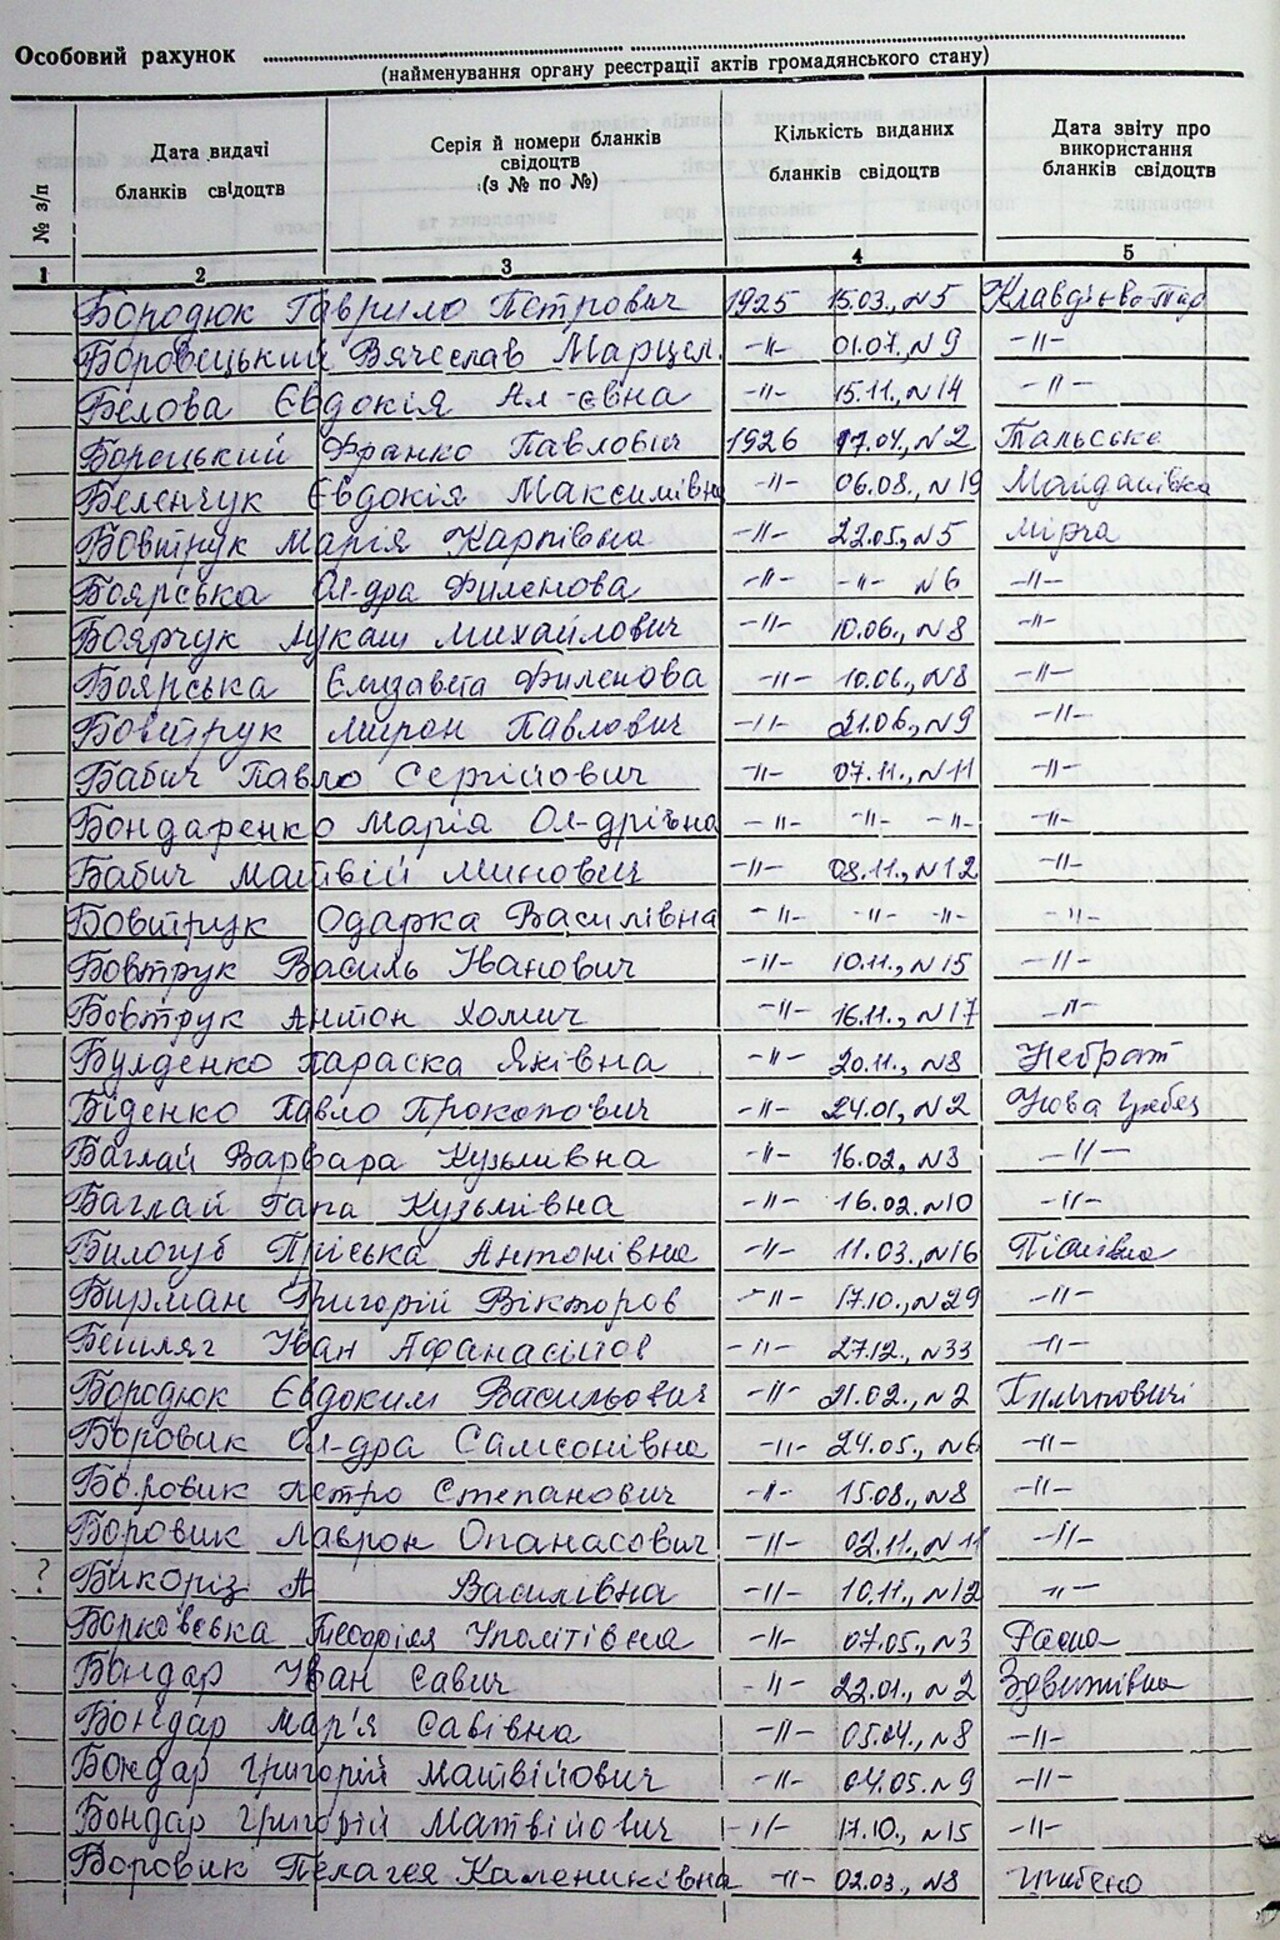 Особовий рахунок
(найменування органу реєстрації актів громадянського стану)
№ з/п Дата видачі бланків свідоцтв Серія й номери бланків свідоцтв (з № по №) Кількість виданих бланків свідоцтв Дата звіту про використання бланків свідоцтв
1 2 3 4 5
Бородюк Гаврило Петрович 1925 15.03., N5
Боровецький Вячеслав Марцел. -"- 01.07., N9 -"-
Бєлова Євдокія Ал-євна -"- 15.11., N14 -"-
Борецький Франко Павлович 1926 17.04., N2 Тальське
Беленчук Євдокія Максимівна -"- 06.08., N19 Майданівка
Бовтрук Марія Карпівна -"- 22.05., N5 Мірча
Боярська Ол-дра Филенова -"- -"- N6 -"-
Боярчук Лукаш Михайлович -"- 10.06., N8 -"-
Боярська Єлизавета Филенова -"- 10.06., N8 -"-
Бовтрук Мирон Павлович -"- 21.06., N9 -"-
Бабич Павло Сергійович -"- 07.11., N11 -"-
Бондаренко Марія Ол-дрівна -"- -"- -"- -"-
Бабич Матвій Минович -"- 08.11., N12 -"-
Бовтрук Одарка Василівна -"- -"- -"- -"-
Бовтрук Василь Іванович -"- 10.11., N15 -"-
Бовтрук Антон Хомич -"- 16.11., N17 -"-
Булденко Параска Яківна -"- 20.11., N8 Небрат
Біденко Павло Прокопович -"- 24.01, N2 Нова Гребля
Баглай Варвара Кузьмівна -"- 16.02, N3 -"-
Баглай Гапа Кузьмівна -"- 16.02. N10 -"-
Билогуб Пріська Антонівна -"- 11.03., N16 Пісківка
Бирман Григорій Вікторов -"- 17.10., N29 -"-
Бешляг Іван Афанасійов -"- 27.12., N33 -"-
Бородюк Євдоким Васильович -"- 21.02., N2
Боровик Ол-дра Самсонівна -"- 24.05., N6 -"-
Боровик Петро Степанович -"- 15.08., N8 -"-
Боровик Лаврон Опанасович -"- 02.11., N11 -"-
? Бикоріз А Василівна -"- 10.11., N12 -"-
Борковська Теофілія Уполітівна -"- 07.05., N3
Бондар Іван Савич -"- 22.01., N2 Здвижівка
Бондар Мар'я Савівна -"- 05.04., N8 -"-
Бондар Григорій Матвійович -"- 04.05. N9 -"-
Бондар Григорій Матвійович -"- 17.10., N15 -"-
Боровик Пелагея Калениківна -"- 02.03., N8